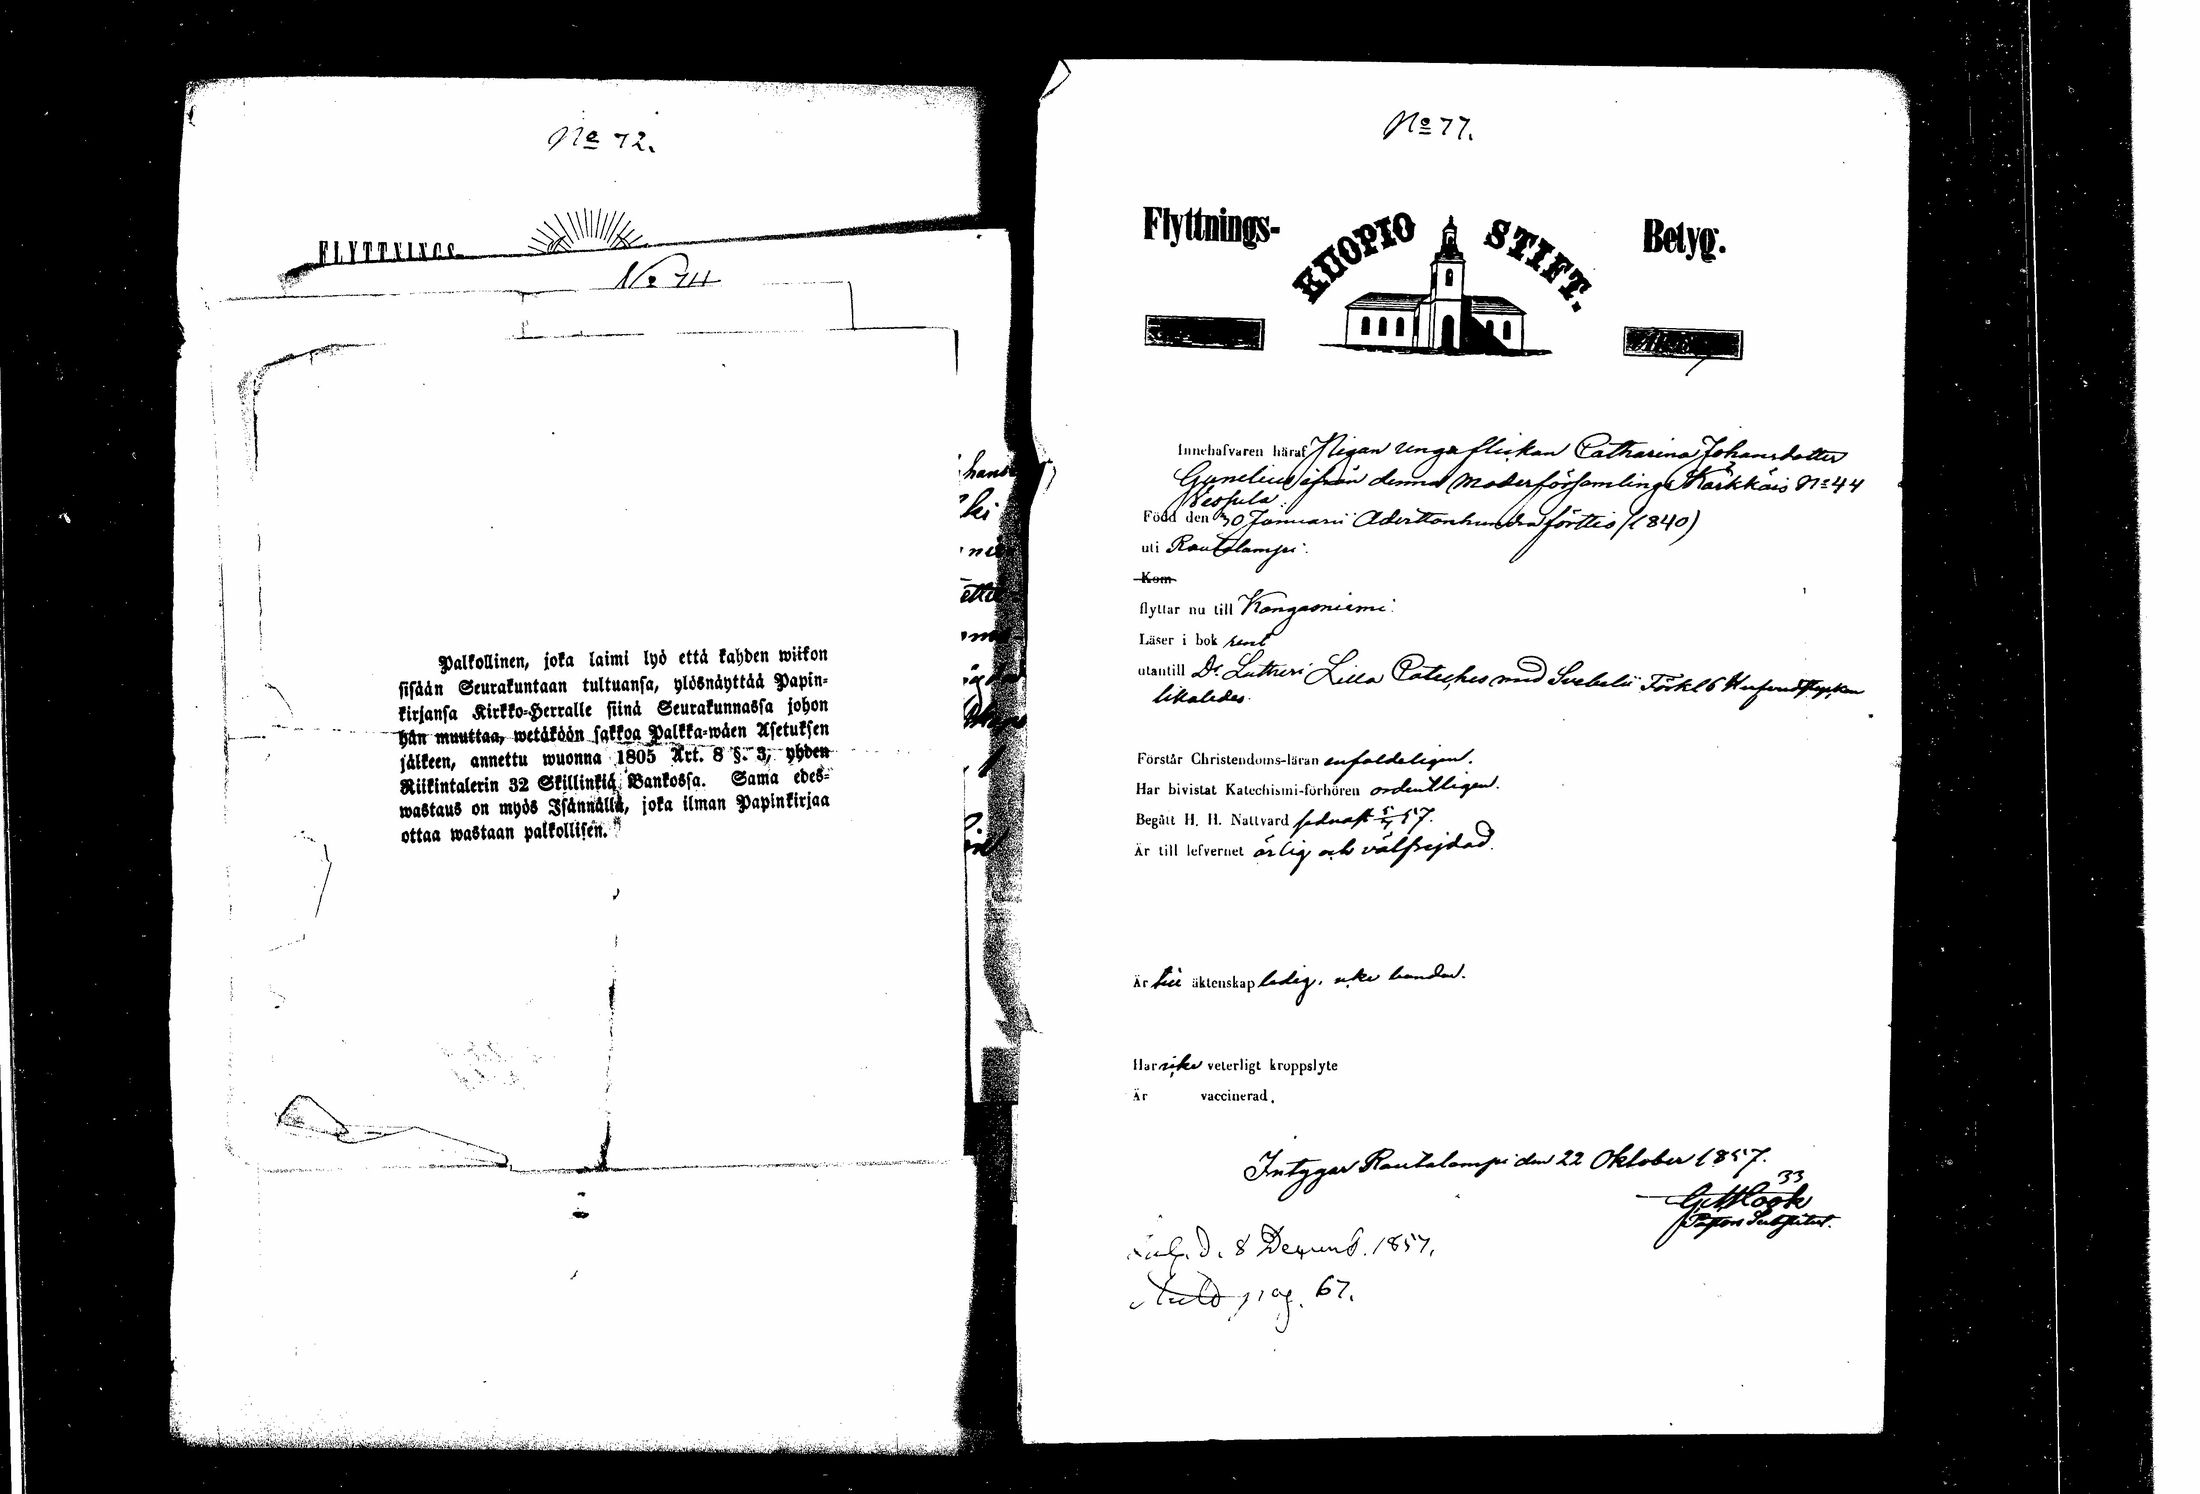 No 72.
FLYTTNINGS-
No 74
Palkollinen, joka laimi lyö että kahden wiikon
sisään Seurakuntaan tultuansa, ylösnäyttää Papin-
kirjansa Kirkko-Herralle siinä Seurakunnassa johon
hän muuttaa, wetäköön sakkoa Palkka-wäen Asetuksen
jälkeen, annettu wuonna 1805 Art. 8 §. 3, yhden
Riikintalerin 32 Skillinkiä Bankossa. Sama edes-
wastaus on myös Isännällä, joka ilman Papinkirjaa
ottaa wastaan palkollisen.
No 77.
Flyttnings- KUOPIO STIFT. Betyg.
Innehafvaren häraf Pigan unga flickan Catharina Johansdotter
Gynelius ifrån denna Moderförsamlings Kärkkäis No 44
Född den 30 Januarii Adertonhundraförttio (1840)
uti Rautalampi.
Kom
flyttar nu till Kangasniemi.
Läser i bok rent
utantill Dr. Lutheri Lilla Cateches med Svebelii Förkl
likaledes.
Förstår Christendoms-läran enfaldeligen.
Har bivistat Katechismi-förhören ordentligen.
Begått H. H. Nattvard sednast 57.
Är till lefvernet ärlig och välfrejdad.
Är till äktenskap ledig,
Har icke veterligt kroppslyte
Är vaccinerad.
Intygar Rautalampi den 22 Oktober 1857.
33
Pastors Substitut.
d. 8 Decemb. 1857.
pag. 67.